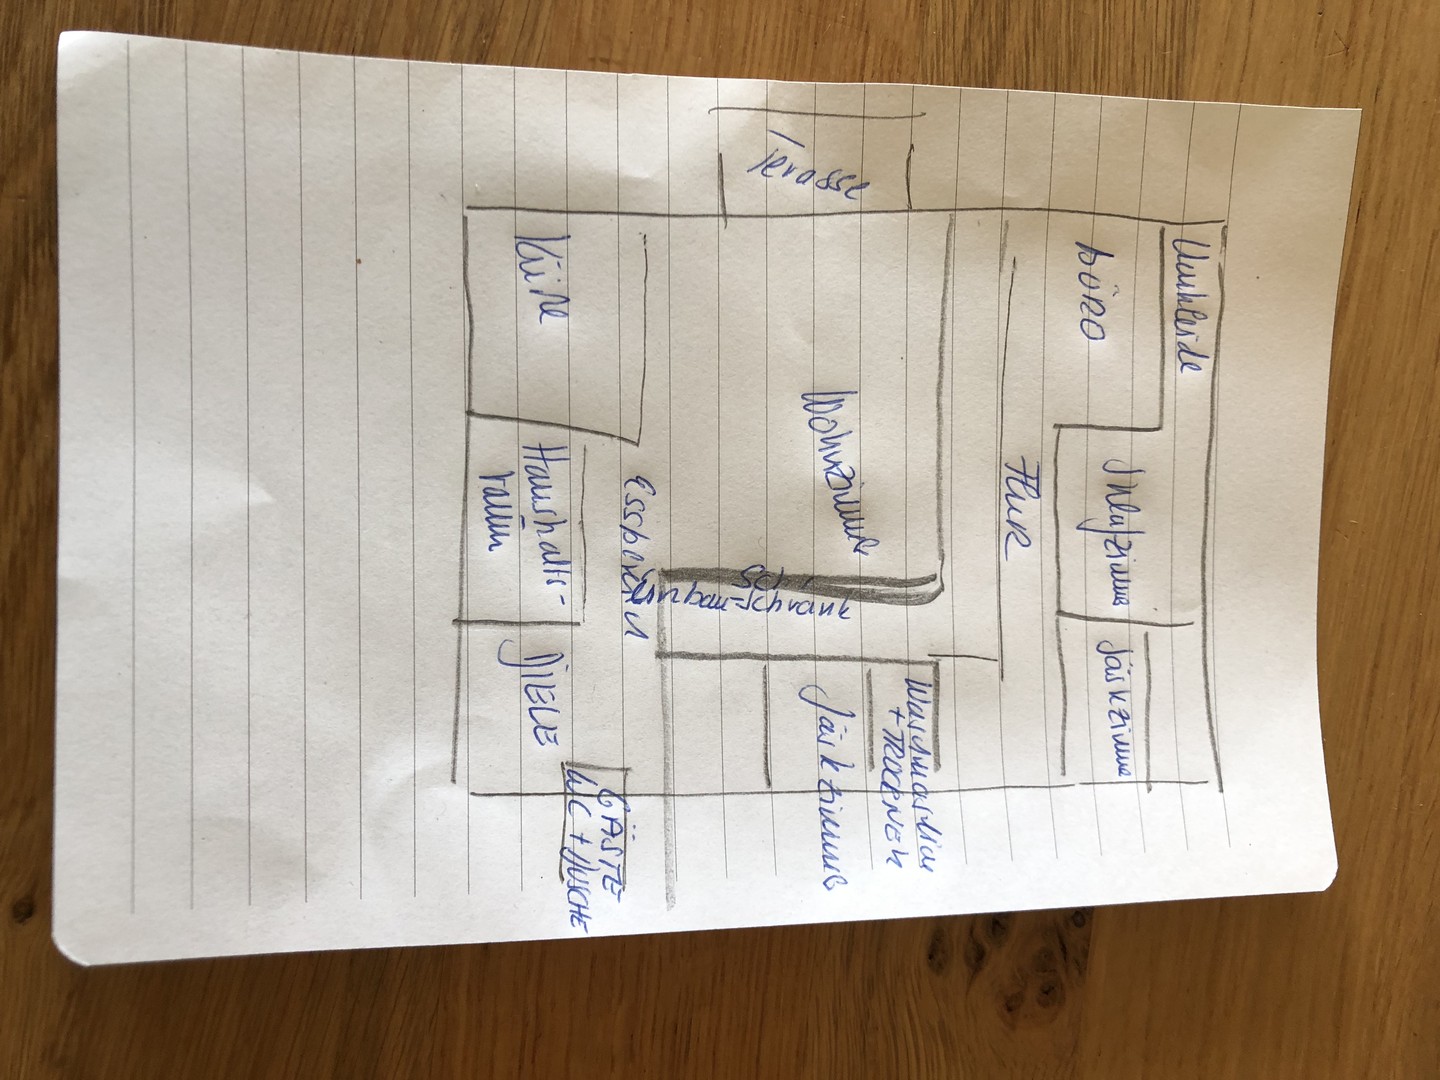 Umkleide
BÜRO
Schlafzimmer
Gästezimmer
FLUR
Waschmaschine
+ TROCKNER
Terasse
Wohnzimmer
Gästezimmer
Einbau-schrank
Essbereich
GÄSTE
WC + DUSCHE
Küche
Haushalts-
raum
DIELE